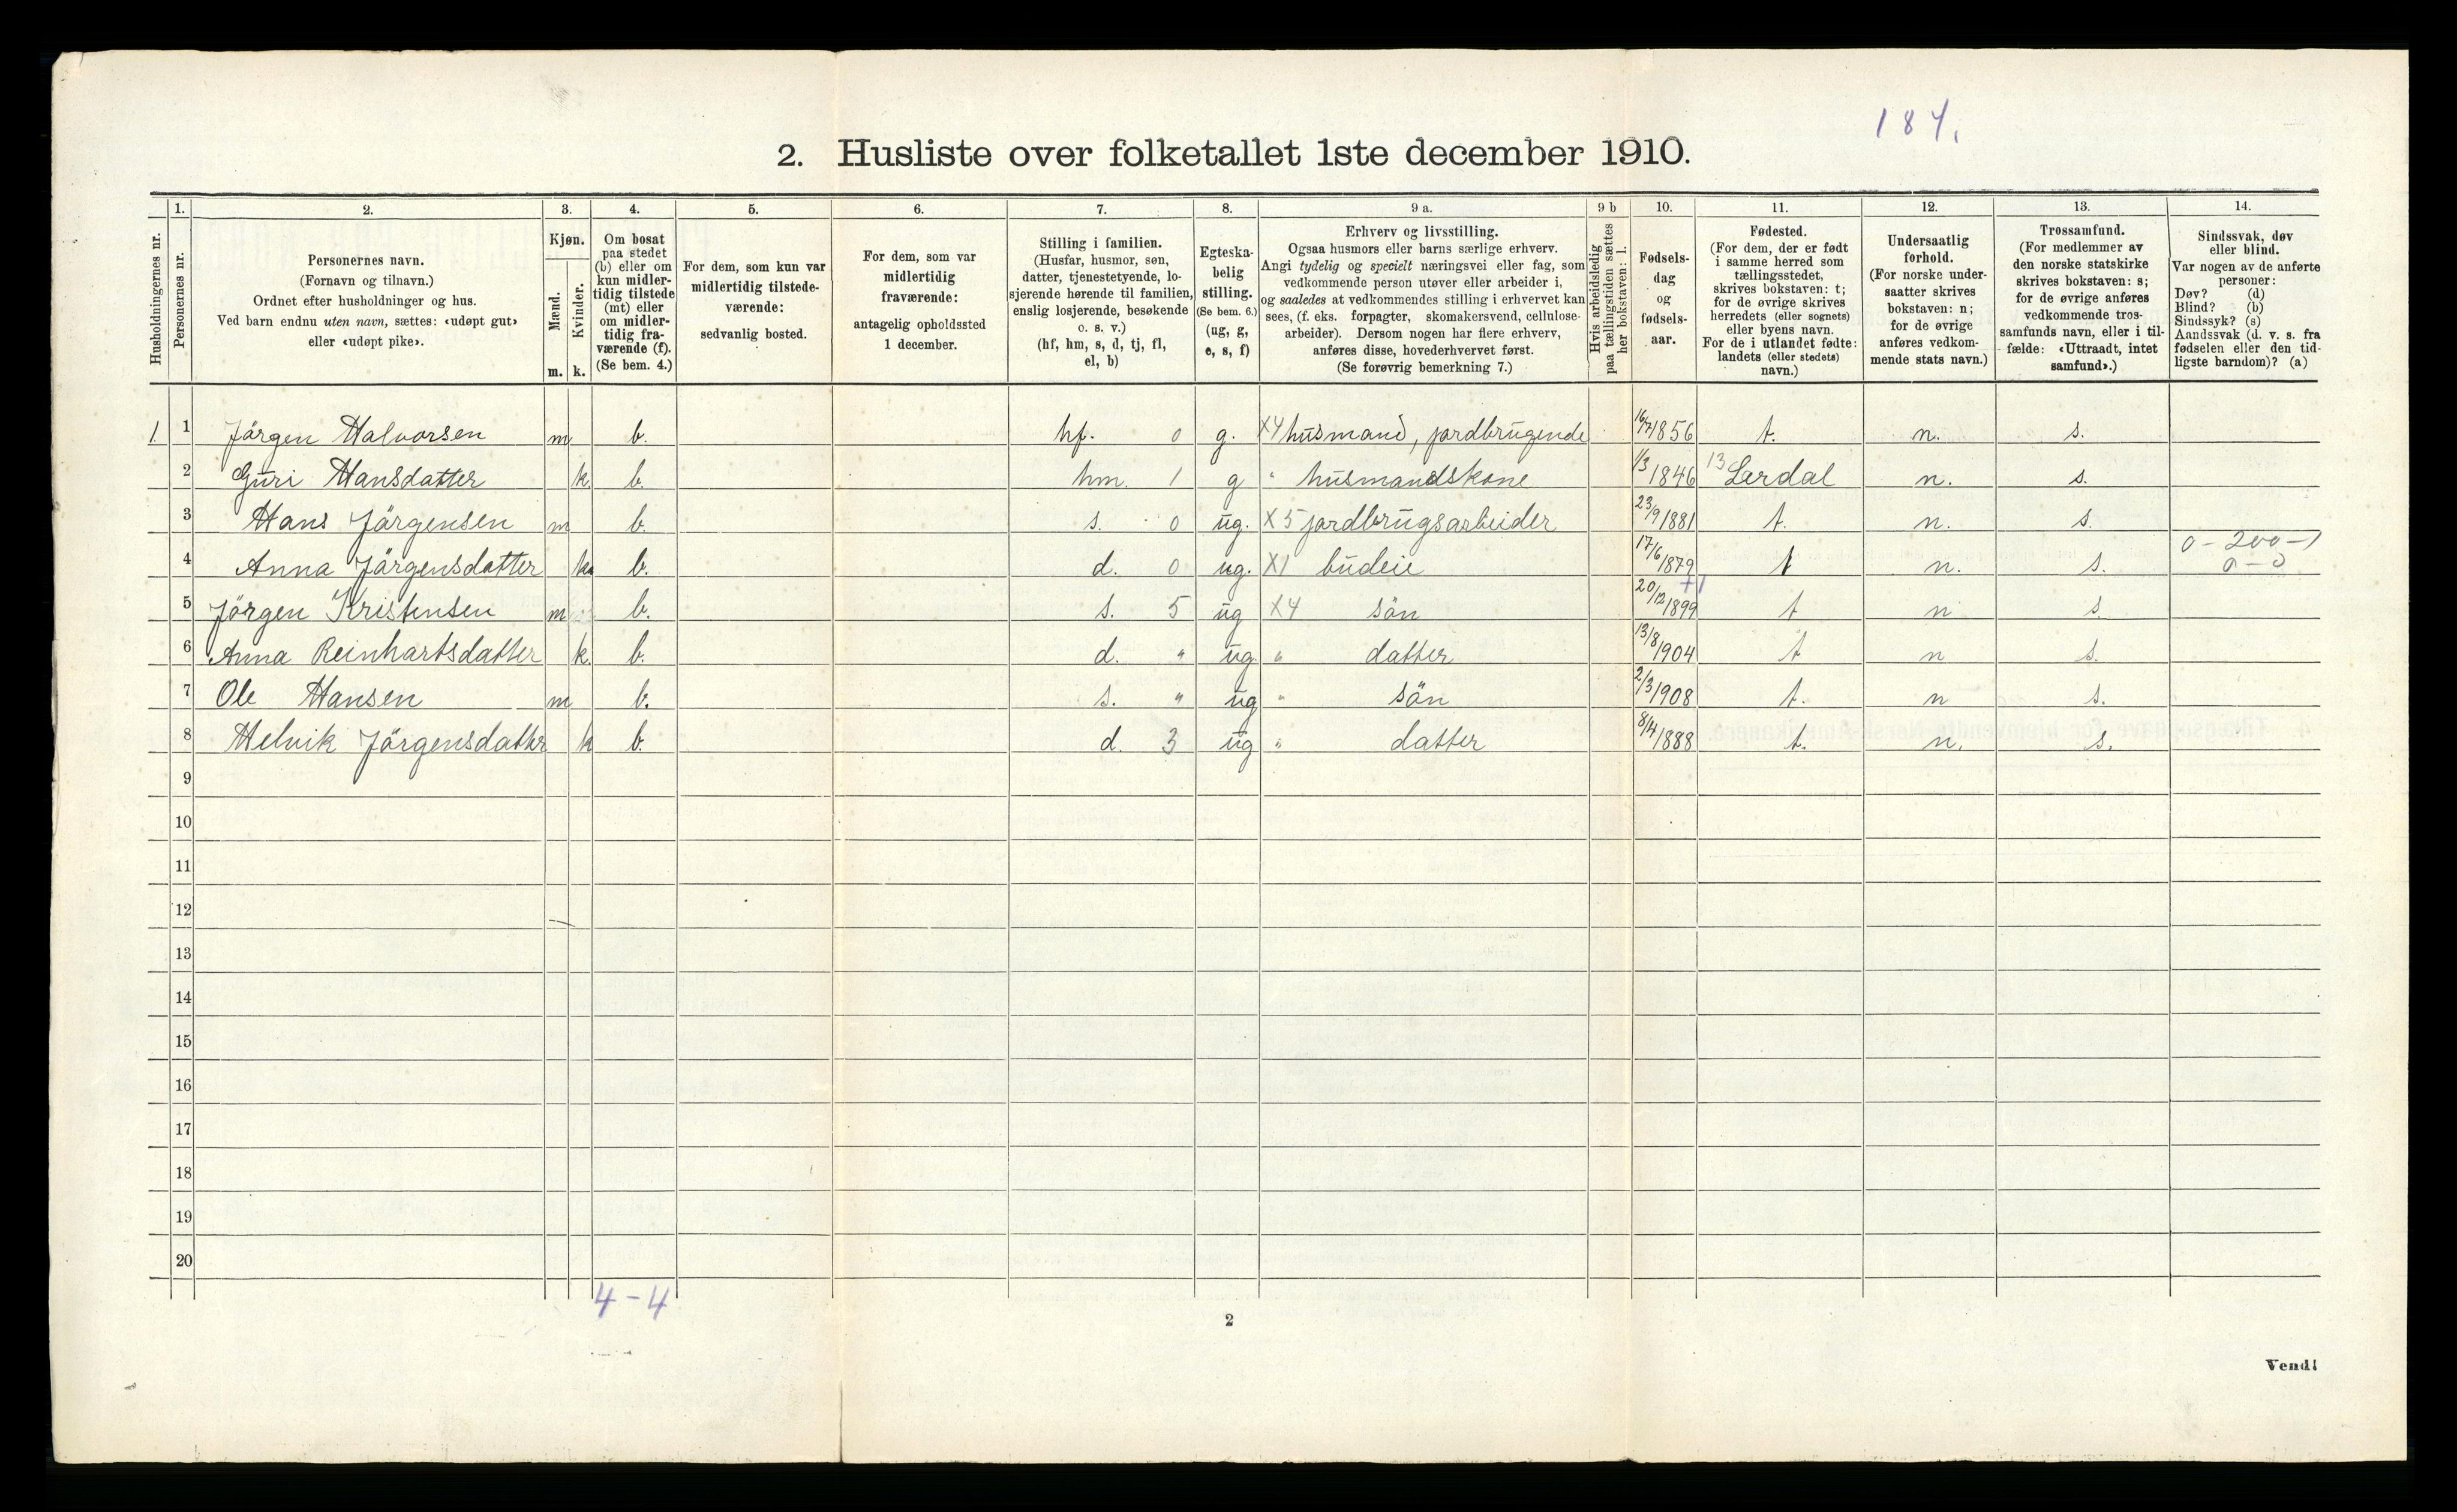 184.
2. Husliste over folketallet 1ste december 1910.
Husholdningernes nr.
1.
Personernes nr.
2.
Personernes navn.
(Fornavn og tilnavn.)
Ordnet efter husholdninger og hus.
Ved barn endnu uten navn, sættes: «udøpt gut»
eller «udøpt pike».
3.
Kjøn.
Mænd.
Kvinder.
m. k.
4.
Om bosat
paa stedet
(b) eller om
kun midler-
tidig tilstede
(mt) eller
om midler-
tidig fra-
værende (f).
(Se bem. 4.)
5.
For dem, som kun var
midlertidig tilstede-
værende:
sedvanlig bosted.
6.
For dem, som var
midlertidig
fraværende:
antagelig opholdssted
1 december.
7.
Stilling i familien.
(Husfar, husmor, søn,
datter, tjenestetyende, lo-
sjerende hørende til familien,
enslig losjerende, besøkende
o. s. v.)
(hf, hm, s, d, tj, fl,
el, b)
8.
Egteska-
belig
stilling.
(Se bem. 6.)
(ug, g,
e, s, f)
9 a.
Erhverv og livsstilling.
Ogsaa husmors eller barns særlige erhverv.
Angi tydelig og specielt næringsvei eller fag, som
vedkommende person utøver eller arbeider i,
og saaledes at vedkommendes stilling i erhvervet kan
sees, (f. eks. forpagter, skomakersvend, cellulose-
arbeider). Dersom nogen har flere erhverv,
anføres disse, hovederhvervet først.
(Se forøvrig bemerkning 7.)
9 b
Hvis arbeidsledig
paa tællingstiden sættes
her bokstaven: l.
10.
Fødsels-
dag
og
fødsels-
aar.
11.
Fødested.
(For dem, der er født
i samme herred som
tællingsstedet,
skrives bokstaven: t;
for de øvrige skrives
herredets (eller sognets)
eller byens navn.
For de i utlandet fødte:
landets (eller stedets)
navn.)
12.
Undersaatlig
forhold.
(For norske under-
saatter skrives
bokstaven: n;
for de øvrige
anføres vedkom-
mende stats navn.)
13.
Trossamfund.
(For medlemmer av
den norske statskirke
skrives bokstaven: s;
for de øvrige anføres
vedkommende tros-
samfunds navn, eller i til-
fælde: «Uttraadt, intet
samfund».)
14.
Sindssvak, døv
eller blind.
Var nogen av de anførte
personer:
Døv? (d)
Blind? (b)
Sindssyk? (s)
Aandssvak (d. v. s. fra
fødselen eller den tid-
ligste barndom)? (a)
1. 1 Jörgen Halvorsen m b. hf. 0 g. X4 husmand, jordbrugende 16/7 1856 t. n. s.
2 Guri Hansdatter k. b. hm. 1 g " husmandskone 1/3 1846 13 Lerdal n. s.
3 Hans Jörgensen m b. s. 0 ug. X5 jordbrugsarbeider 23/9 1881 t. n. s.
0-200-1
4 Anna Jörgensdatter k b. d. 0 ug. X1 budeie 17/6 1879 t n. s. 0-0
+1
5 Jörgen Kristensen m b. s. 5 ug X4 sön 20/12 1899 t n s
6 Anna Reinhartsdatter k. b. d. " ug. " datter 13/8 1904 t n s.
7 Ole Hansen m b. s. " ug " sön 2/3 1908 t. n s.
8 Helvik Jörgensdatter k b. d. 3 ug " datter 8/4 1888 t. n. s.
9
10
11
12
13
14
15
16
17
18
19
20
4-4
2
Vend!